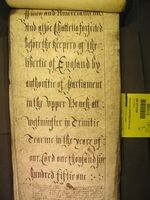 Fines and Amerciaments
And alsoe Chattells forfeited
before the keepers of the
libertie of England by
authoritie of Parliament
in the Upper Bench att
Westminster in Trinitie
Tearme in the yeare of
our Lord one thousand six
hundred fiftie one